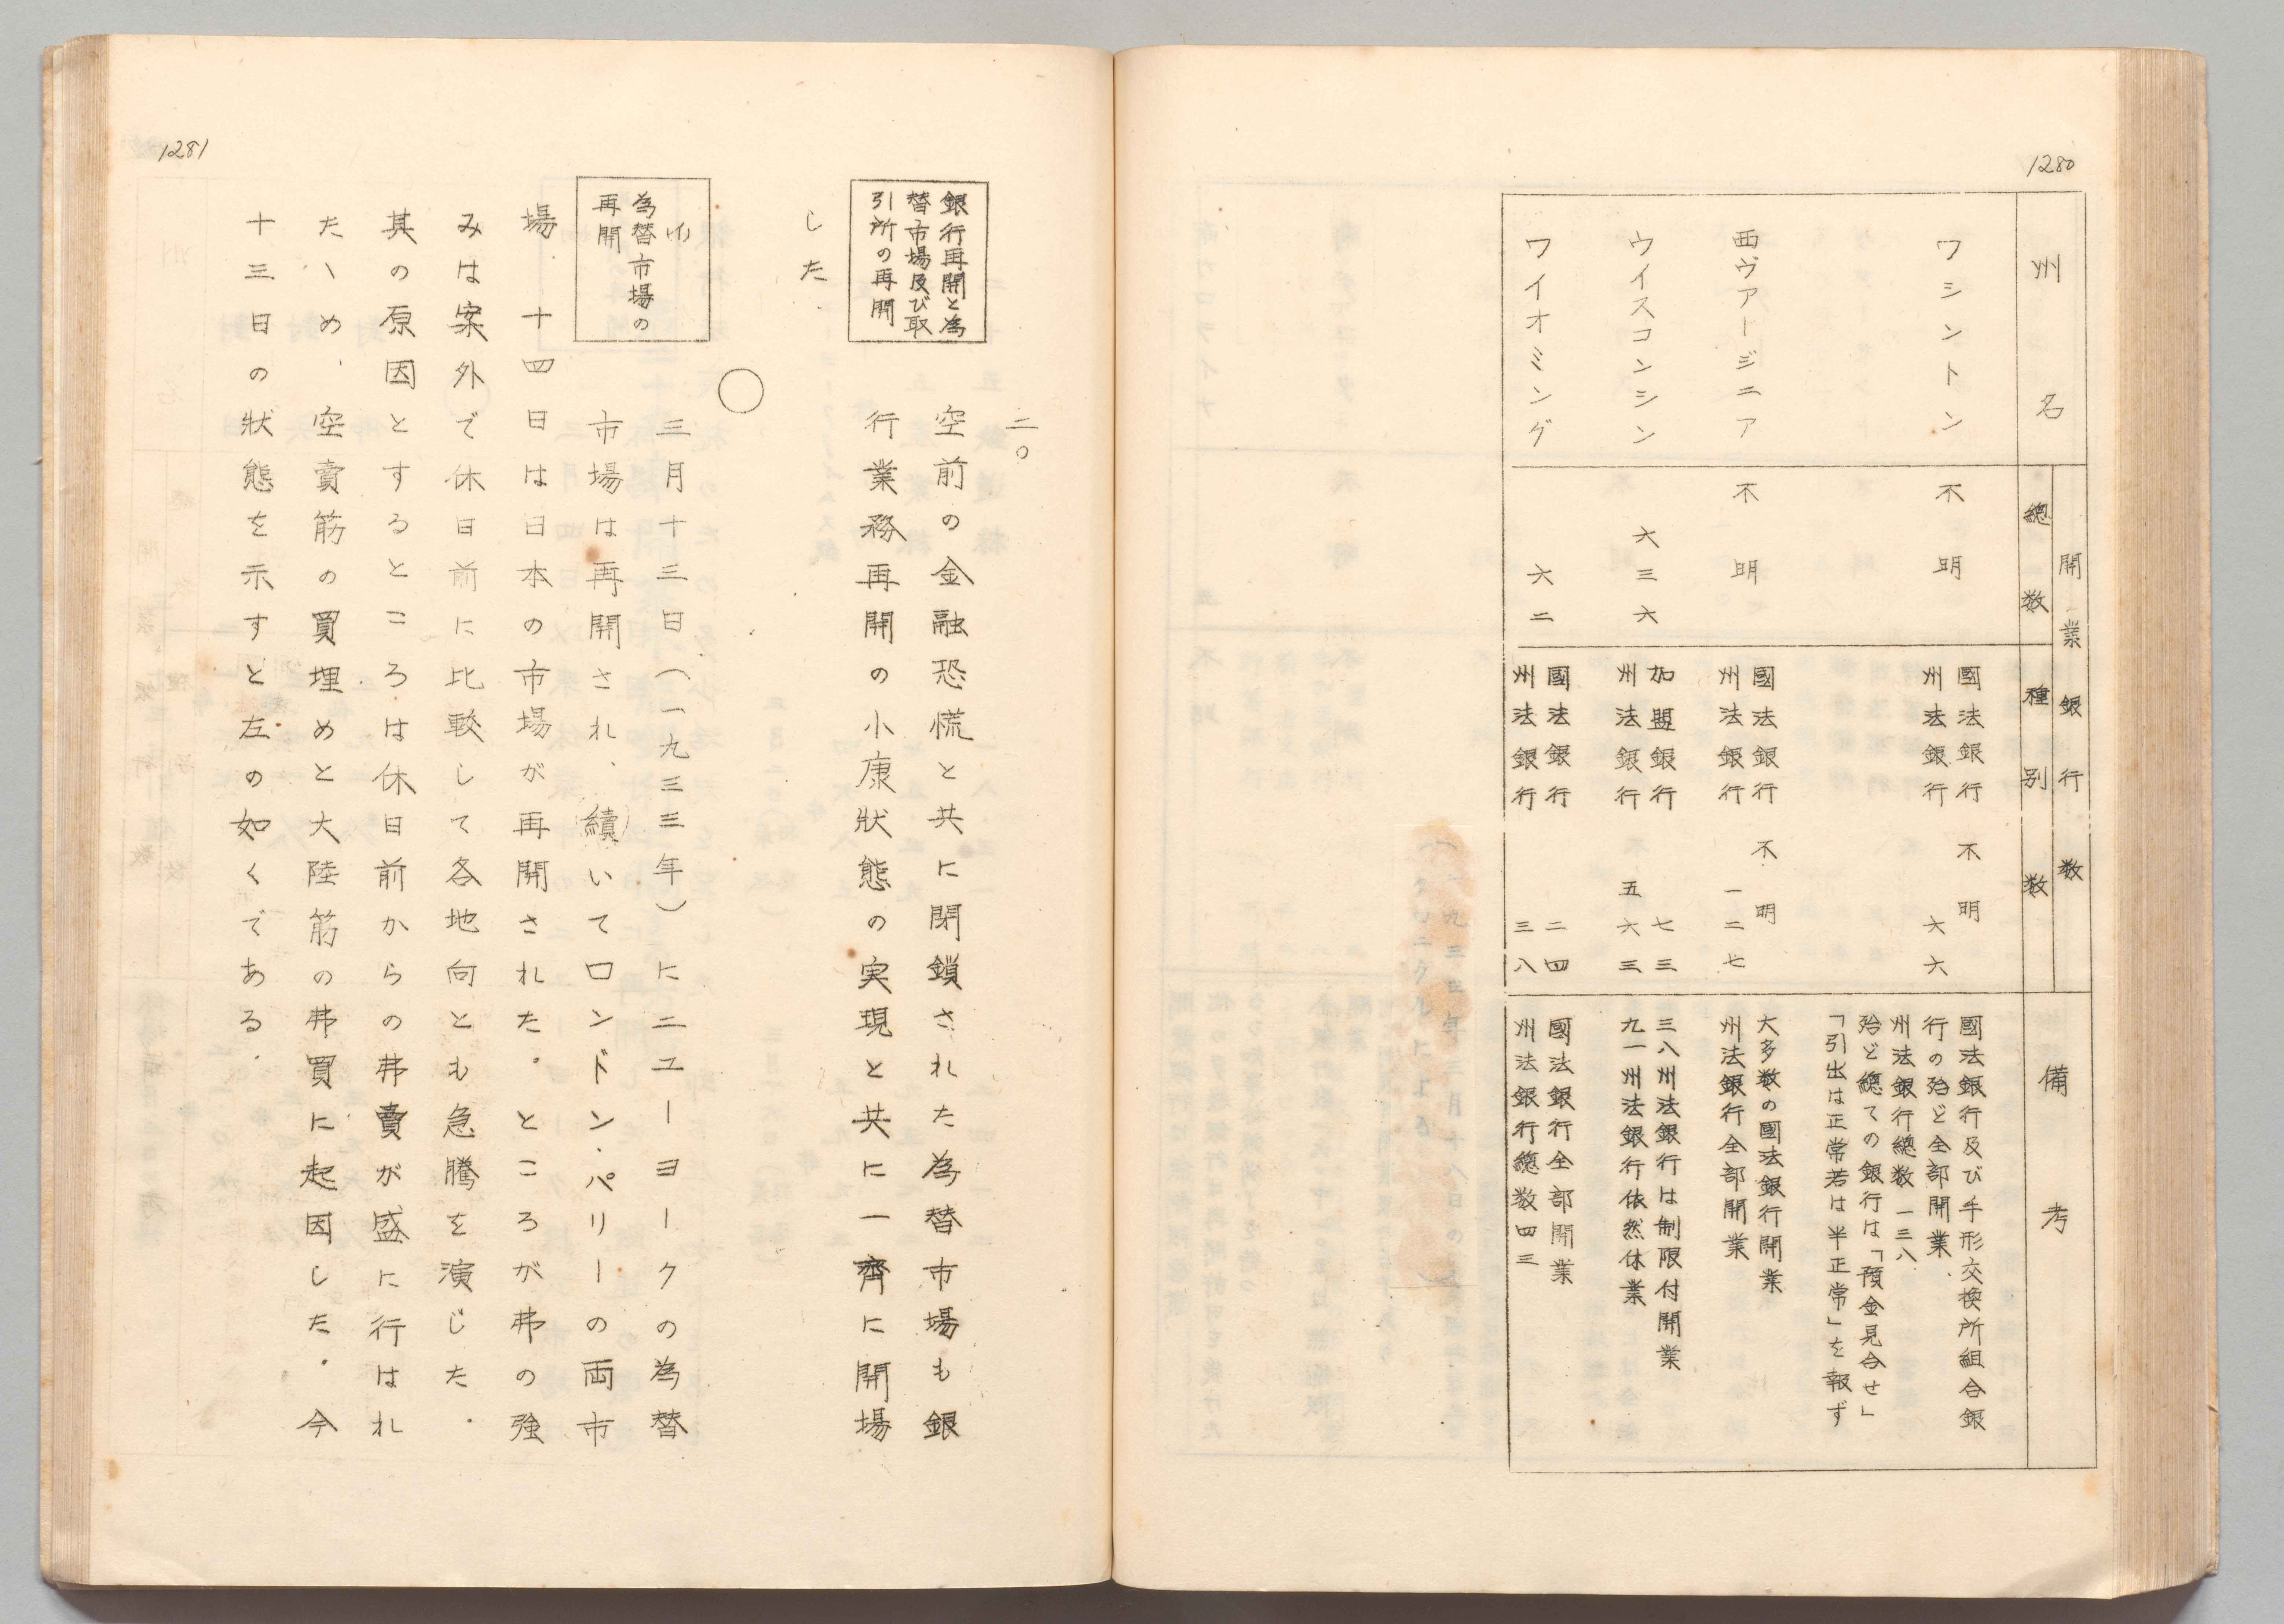 1280
州名
開業銀行数
總数
種別数
備考
ワシントン
不明
國法銀行 不明
州法銀行 六六
國法銀行及び手形交換所組合銀
行の殆ど全部開業.
州法銀行總数一三八
殆ど總ての銀行は「預金見合せ」
「引出は正常若は半正常」を報ず
西ヴァージニア
不明
國法銀行 不明
州法銀行 一二七
大多数の國法銀行開業
州法銀行全部開業
ウイスコンシン
六三六
加盟銀行 七三
州法銀行 五六三
三八州法銀行は制限付開業
九一州法銀行依然休業
ワイオミング
六二
國法銀行 二四
州法銀行 三八
國法銀行全部開業
州法銀行總数四三
1281
二。
銀行再開と為
替市場及び取
引所の再開
空前の金融恐慌と共に閉鎖された為替市場も銀
行業務再開の小康狀態の実現と共に一齊に開場
した.
(1)
為替市場の
再開
三月十三日(一九三三年)にニユーヨークの為替
市場は再開され、續いてロンドン.パリーの両市
場.十四日は日本の市場が再開された.ところが弗の強
みは案外で休日前に比較して各地向とも急騰を演じた.
其の原因とするところは休日前からの弗賣が盛に行はれ
たヽめ、空賣筋の買埋めと大陸筋の弗買に起因した.今
十三日の狀態を示すと左の如くである.